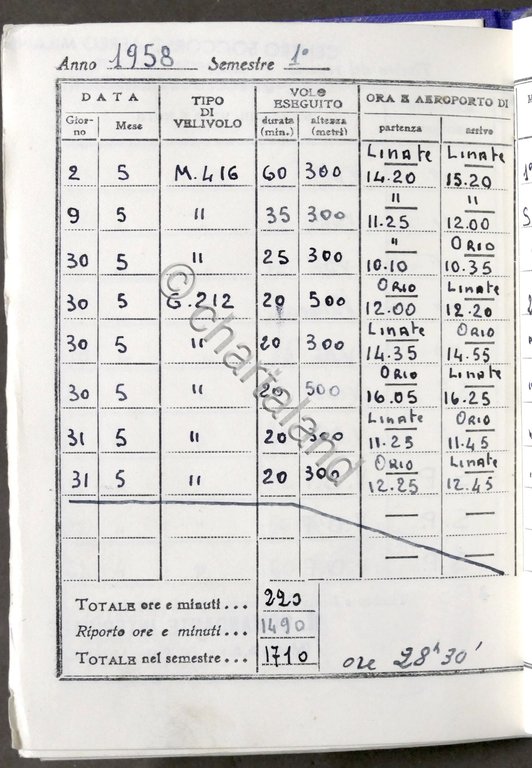 Anno 1958 Semestre 1°
DATA TIPO DI VELIVOLO VOLO ESEGUITO ORA E AEROPORTO DI
Giorno Mese durata (min.) altezza (metri) partenza arrivo
Linate Linate
2 5 M.416 60 300 14.20 15.20
" "
9 5 " 35 300 11.25 12.00
" Orio
30 5 " 25 300 10.10 10.35
Orio Linate
30 5 G.212 20 500 12.00 12.20
Linate Orio
30 5 " 20 300 14.35 14.55
Orio Linate
30 5 " 20 500 16.05 16.25
Linate Orio
31 5 " 20 300 11.25 11.45
Orio Linate
31 5 " 20 300 12.25 12.45
— —
— —
TOTALE ore e minuti... 220
Riporto ore e minuti... 1490
TOTALE nel semestre... 1710 ore 28h 30'
© chartaland